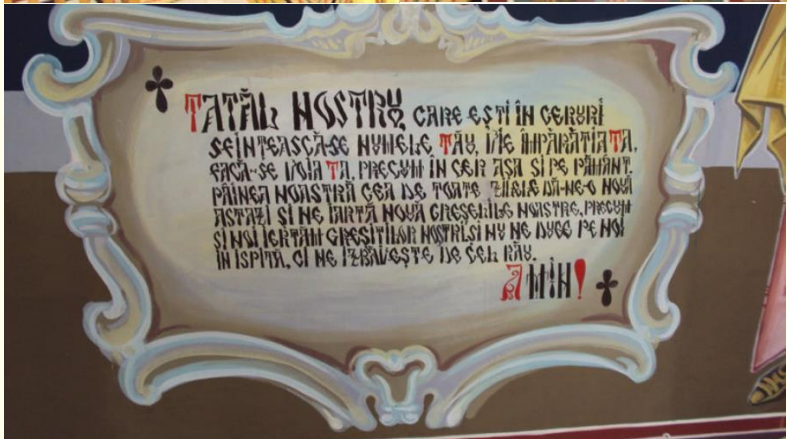 TATĂL NOSTRU CARE EȘTI ÎN CERURI
SFINȚEASCĂ-SE NUMELE TĂU, VIE ÎMPĂRĂȚIA TA,
FACĂ-SE VOIA TA, PRECUM ÎN CER AȘA ȘI PE PĂMÂNT.
PÂINEA NOASTRĂ CEA DE TOATE ZILELE DĂ-NE-O NOUĂ
ASTĂZI ȘI NE IARTĂ NOUĂ GREȘELILE NOASTRE, PRECUM
ȘI NOI IERTĂM GREȘIȚILOR NOȘTRI, ȘI NU NE DUCE PE NOI
ÎN ISPITĂ, CI NE IZBĂVEȘTE DE CEL RĂU.
AMIN!